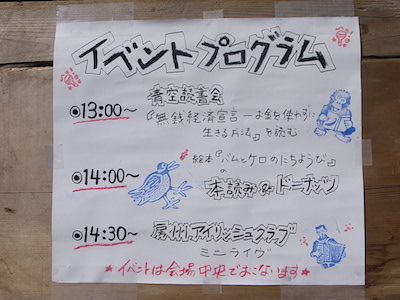 イベントプログラム
◉13:00〜 青空読書会
『無銭経済宣言ーお金を使わずに
生きる方法』を読む
◉14:00〜 絵本『バムとケロのにちようび』
の
本読み&ドーナッツ
◉14:30〜 アイリッシュクラブ
ミニライヴ
★イベントは会場中央でおこないます★